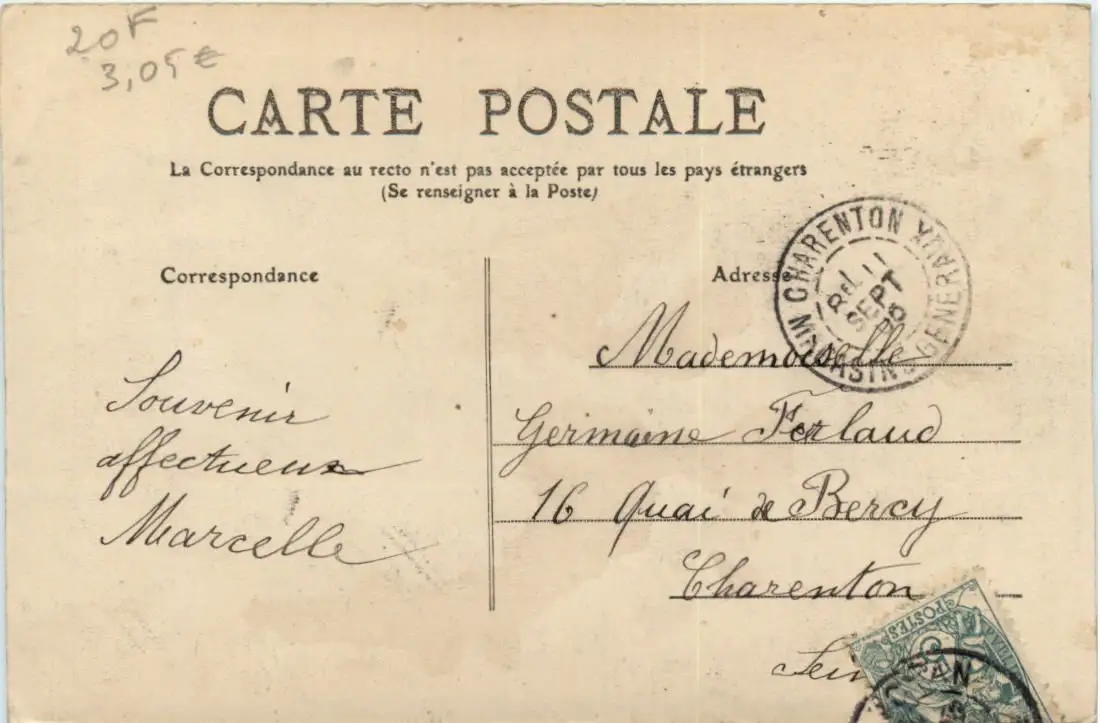 20F
3,05€
CARTE POSTALE
La Correspondance au recto n'est pas acceptée par tous les pays étrangers
(Se renseigner à la Poste)
Correspondance
Adresse
CHARENTON MAGASINS GENERAUX
11
SEPT
Mademoiselle
Germaine Ferlaud
16 Quai de Bercy
Charenton
Souvenir
affectueux
Marcelle
POSTES